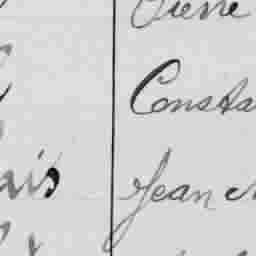 Pierre
Consta
ais Jean